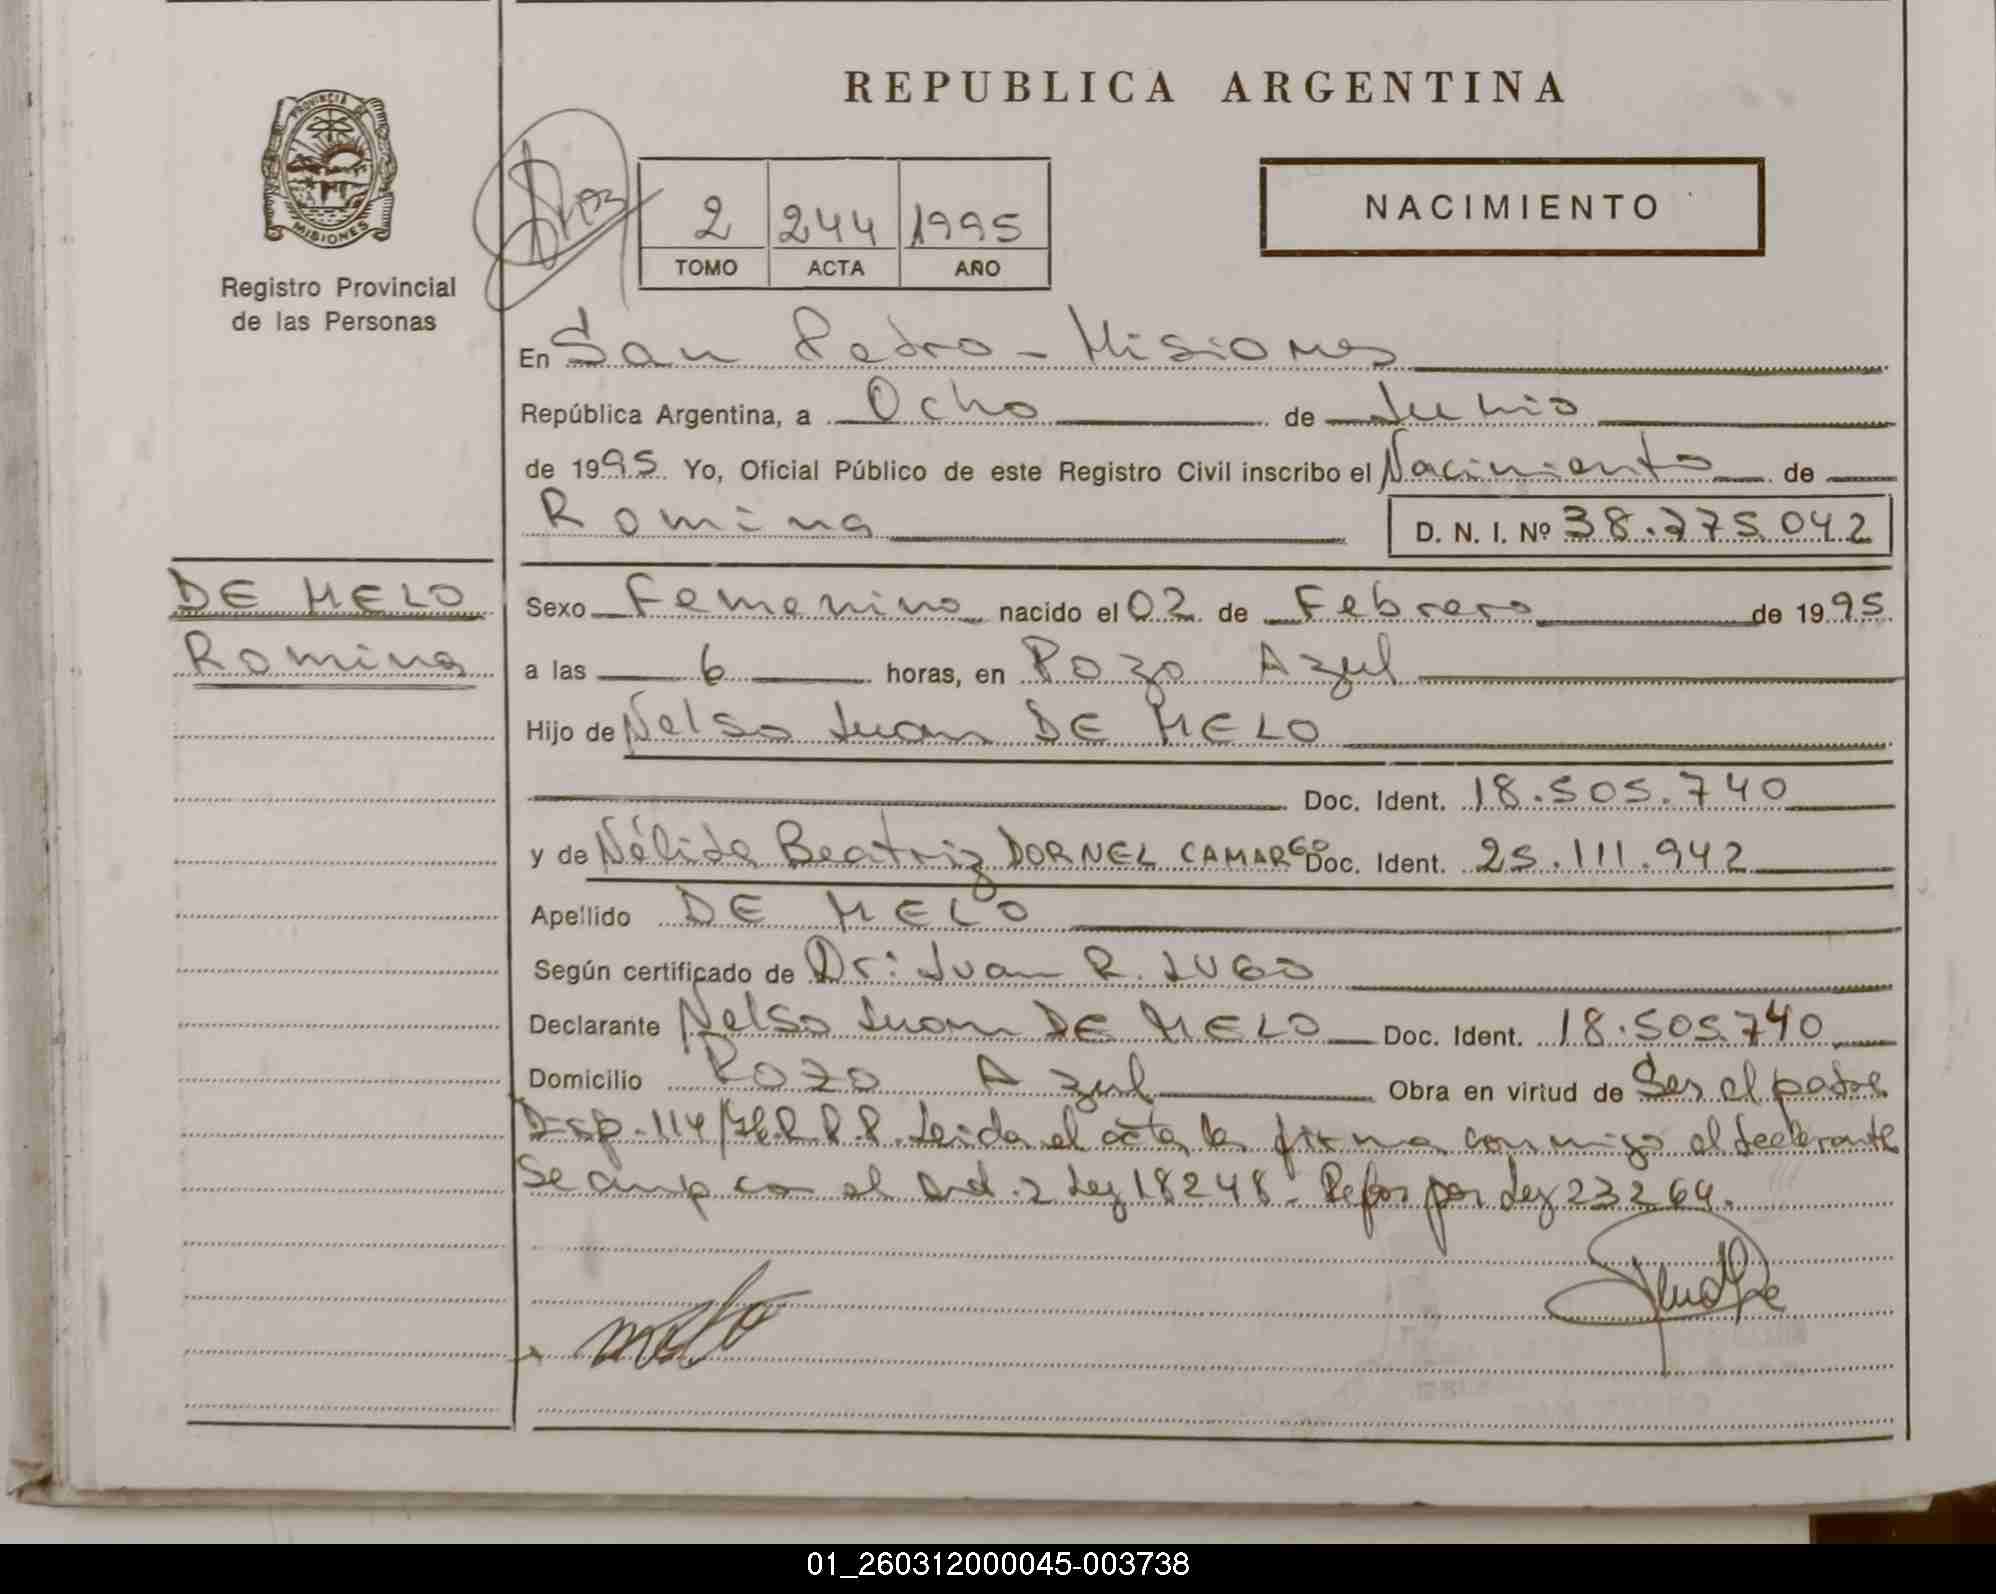 REPUBLICA ARGENTINA
PROVINCIA DE
MISIONES
Registro Provincial
de las Personas
2 244 1995
TOMO ACTA AÑO
NACIMIENTO
En San Pedro - Misiones
República Argentina, a Ocho de Junio
de 1995. Yo, Oficial Público de este Registro Civil inscribo el Nacimiento de
Romina D. N. I. Nº 38.775.042
DE MELO
Romina
Sexo Femenino nacido el 02 de Febrero de 1995
a las 6 horas, en Pozo Azul
Hijo de Nelso Juan DE MELO
Doc. Ident. 18.505.740
y de Nélida Beatriz DORNEL CAMARGO Doc. Ident. 25.111.942
Apellido DE MELO
Según certificado de Dr: Juan R. LUGO
Declarante Nelso Juan DE MELO Doc. Ident. 18.505.740
Domicilio Pozo Azul Obra en virtud de Ser el padre
Disp. 114/ R.P.P. Leida el acta la firma conmigo el declarante
Se cump con el Art. 2 Ley 18248 - Refor por Ley 23264.
01_260312000045-003738